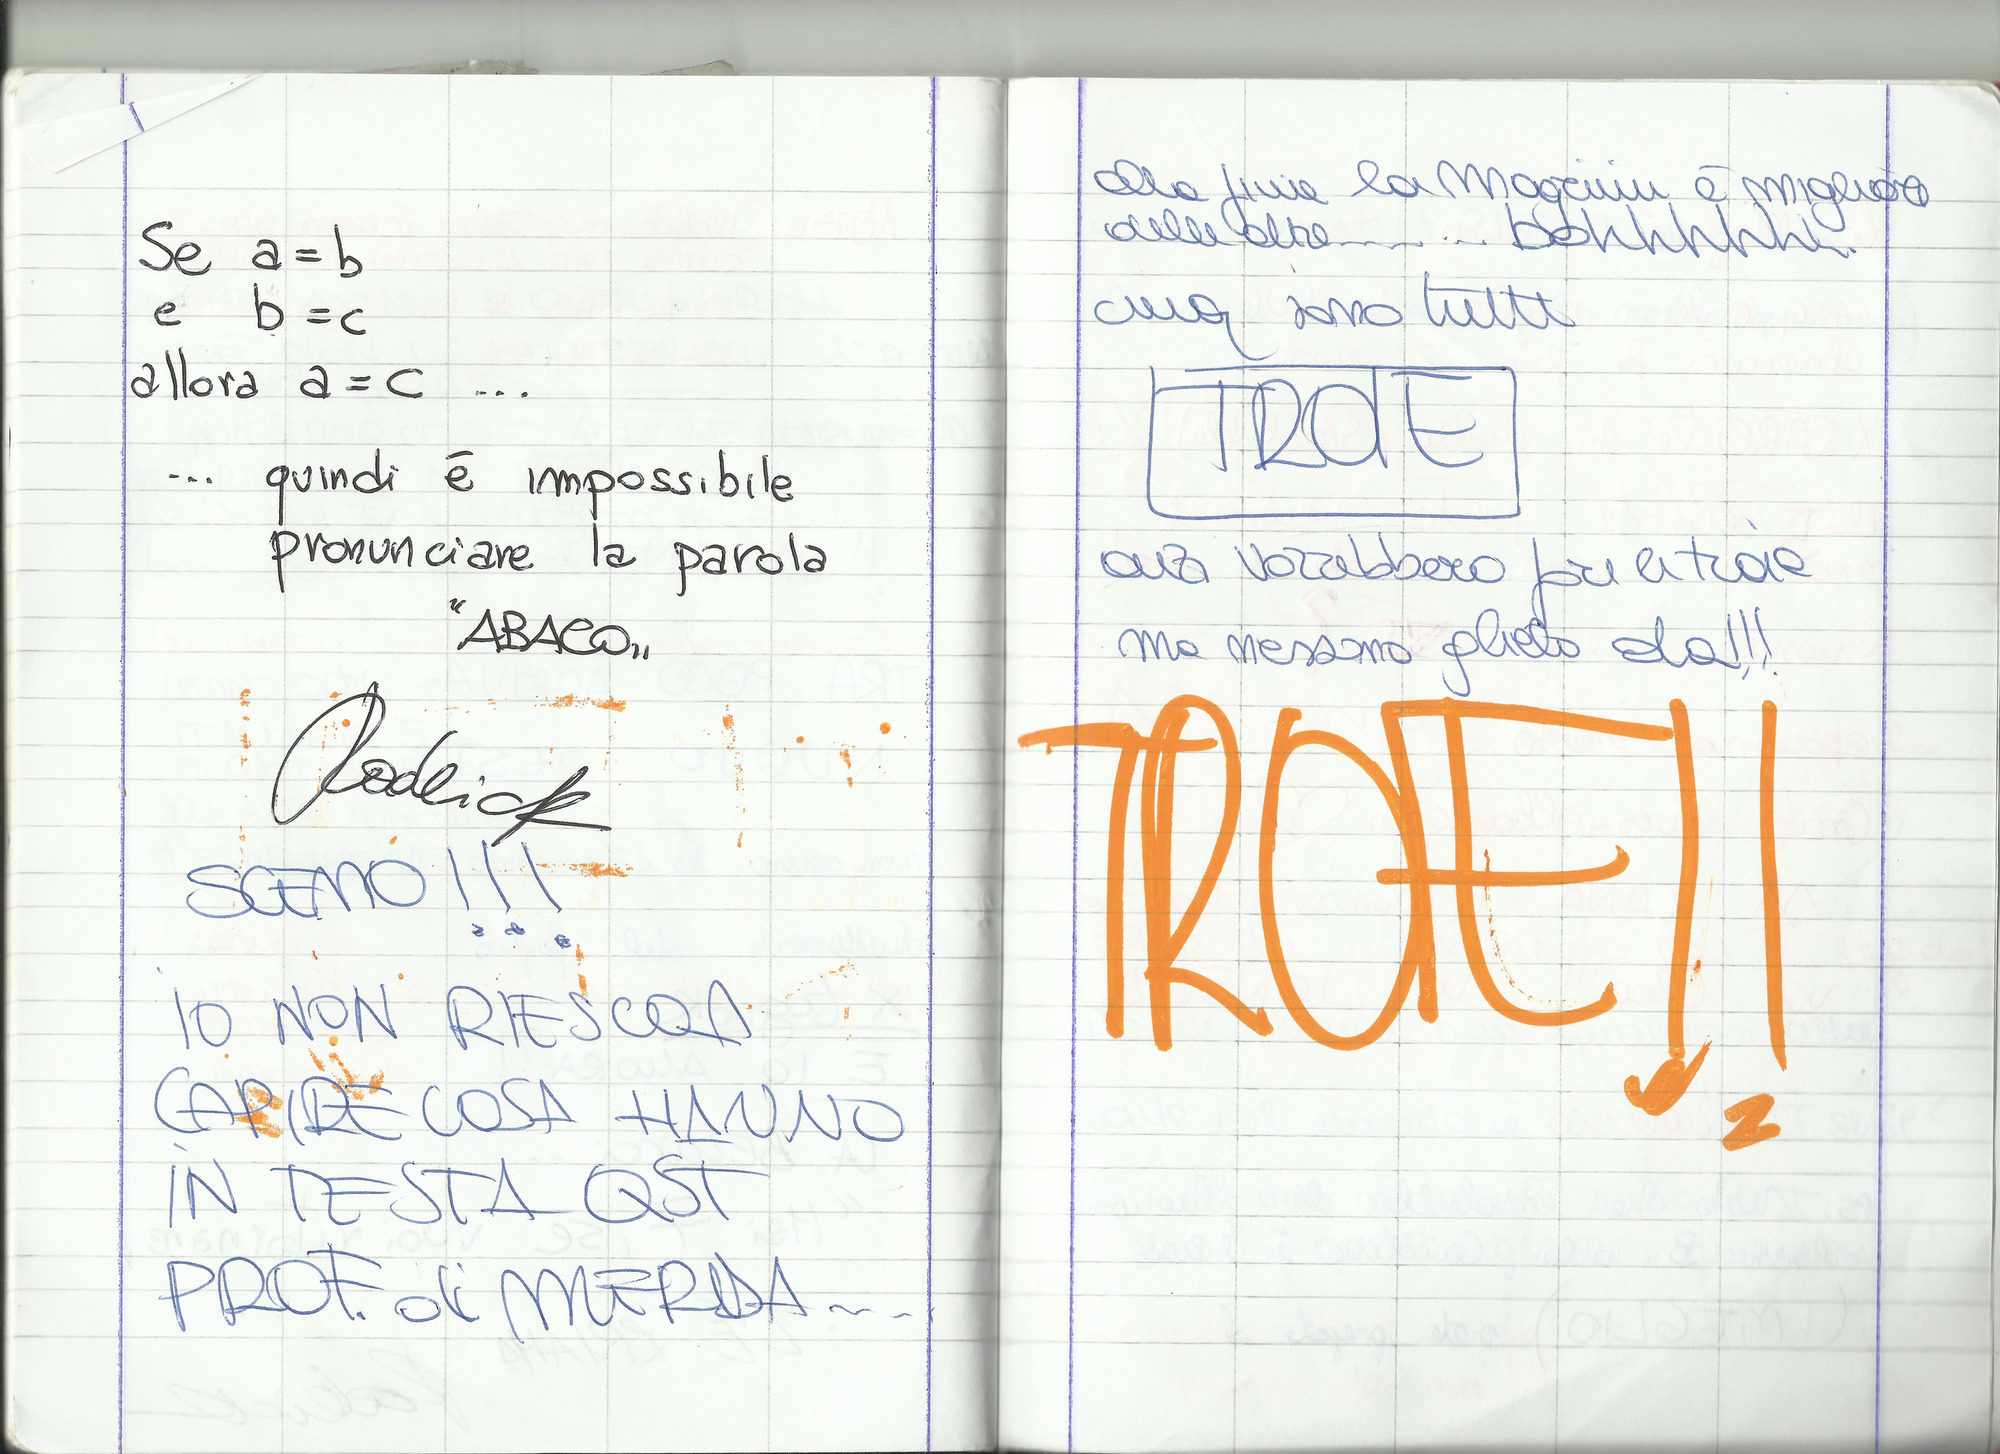 Se a=b
e b=c
allora a=c ...
... quindi è impossibile
pronunciare la parola
"ABACO„
Roderick
SCEMO!!!
IO NON RIESCO A
CAPIRE COSA HANNO
IN TESTA QST
PROF. di MERDA....
alla fine la è migliore
delle altre........ bohhhhhhh.
cmq sono tutte
TROIE
anzi vorrebbero fare le troie
ma nessuno glielo da!!!
TROIE!!